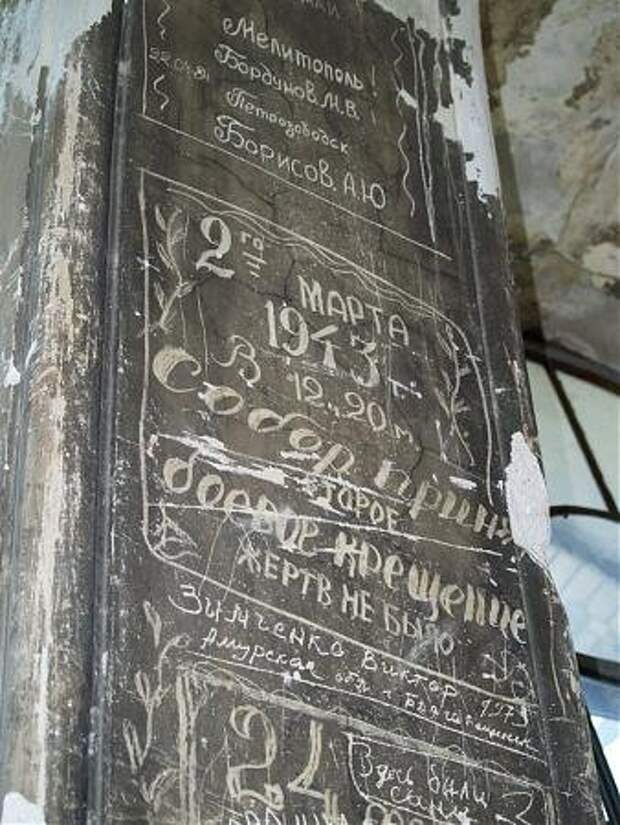 Мелитополь!
22.04.81
Бордунов.М.В.
Петрозаводск
Борисов.А.Ю
2го
МАРТА
1943г.
В 12ч.20м.
Собор принял
ВТОРОЕ
боевое крещение
ЖЕРТВ НЕ БЫЛО
Зимченко Виктор 1973
Амурская обл г Благовещенск
24
Здесь были
Саня